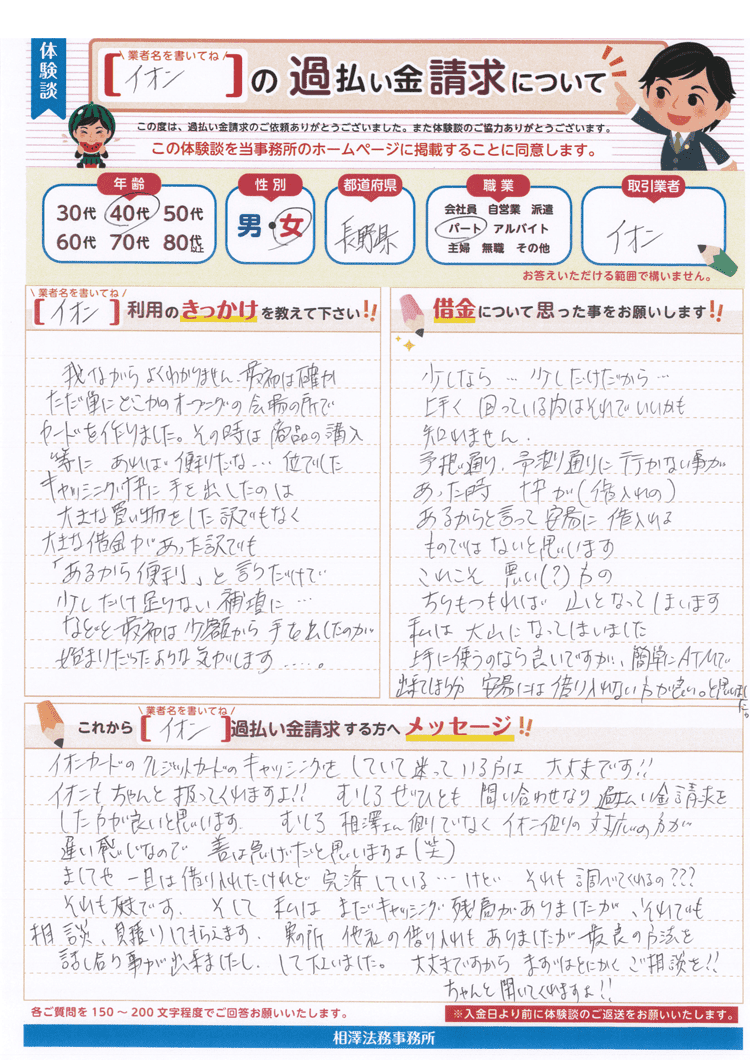 体験談
業者名を書いてね
[イオン]の過払い金請求について
この度は、過払い金請求のご依頼ありがとうございました。また体験談のご協力ありがとうございます。
この体験談を当事務所のホームページに掲載することに同意します。
年齢
30代 40代 50代
60代 70代 80代以上
性別
男・女
都道府県
長野県
職業
会社員 自営業 派遣
パート アルバイト
主婦 無職 その他
取引業者
イオン
お答えいただける範囲で構いません。
業者名を書いてね
[イオン]利用のきっかけを教えて下さい!!
我ながらよくわかりません。最初は確か
ただ単にどこかのオープニングの会場の所で
カードを作りました。その時は商品の購入
等に あれば便利だな…位でした
キャッシング枠に手を出したのは
大きな買い物をした訳でもなく
大きな借金があった訳でも
「あるから便利」と言うだけで
少しだけ足りない補填に…
などと最初は少額から手を出したのが
始まりだったような気がします……。
借金について思った事をお願いします!!
少しなら… 少しだけだから…
上手く回っている内はそれでいいかも
知れません。
予想通り、予定通りに行かない事が
あった時 枠が(借入れの)
あるからと言って安易に借入れる
ものではないと思います
これこそ 悪い(?)方の
ちりもつもれば 山となってしまいます
私は大山になってしまいました
上手に使うのなら良いですが、簡単にATMで
出来てしまう分 安易には借り入れない方が良い。と思いました。
業者名を書いてね
これから[イオン]過払い金請求する方へメッセージ!!
イオンカードのクレジットカードのキャッシングをしていて迷っている方は大丈夫です!!
イオンもちゃんと扱ってくれますよ!! むしろぜひとも問い合わせなり過払い金請求を
した方が良いと思います。 むしろ相澤さん側でなくイオン側の対応の方が
遅い感じなので 善は急げだと思いますよ(笑)
ましてや一旦は借り入れたけれど完済している…けど それも調べてくれるの???
それも大丈夫です。そして私はまだキャッシング残高がありましたが、それでも
相談、見積りしてもらえます。実の所 他社の借り入れもありましたが最良の方法を
話し合う事が出来ましたし、して下さいました。 大丈夫ですからまずはとにかくご相談を!!
ちゃんと聞いてくれますよ!!
各ご質問を150～200文字程度でご回答お願いいたします。
※入金日より前に体験談のご返送をお願いいたします。
相澤法務事務所